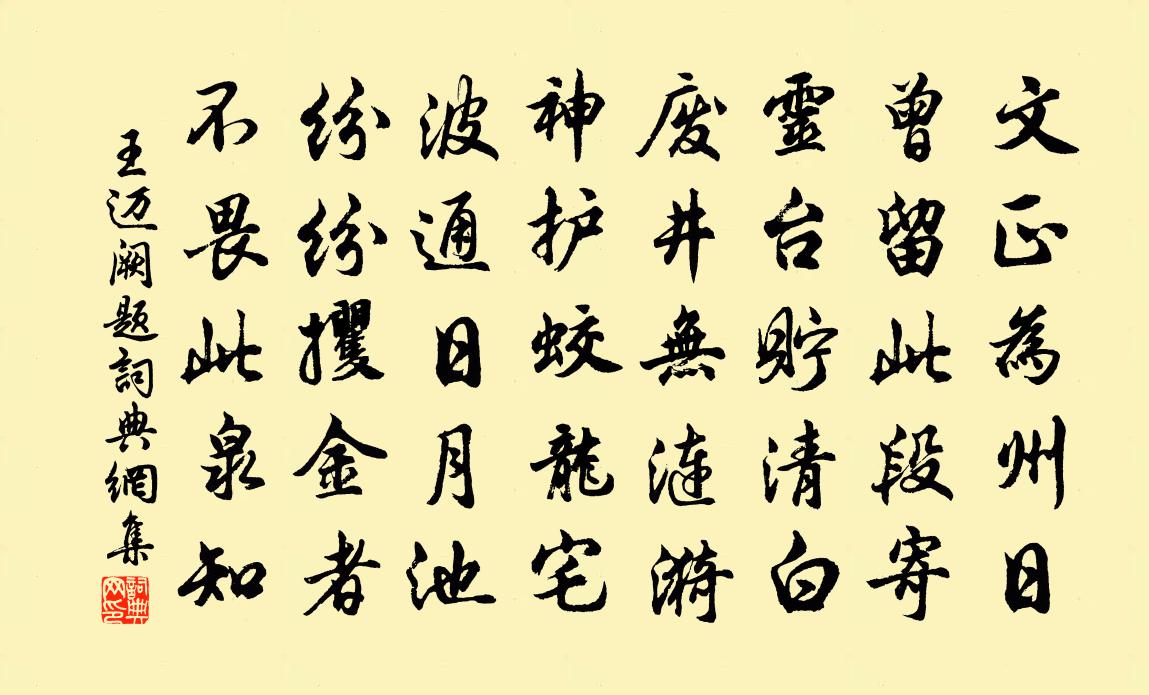 文正為州日
曾留此段寄
靈台貯清白
废井無漣漪
神护蛟龍宅
波通日月池
纷纷攫金者
不畏此泉知
王迈阙题詞典網集
詞典網印